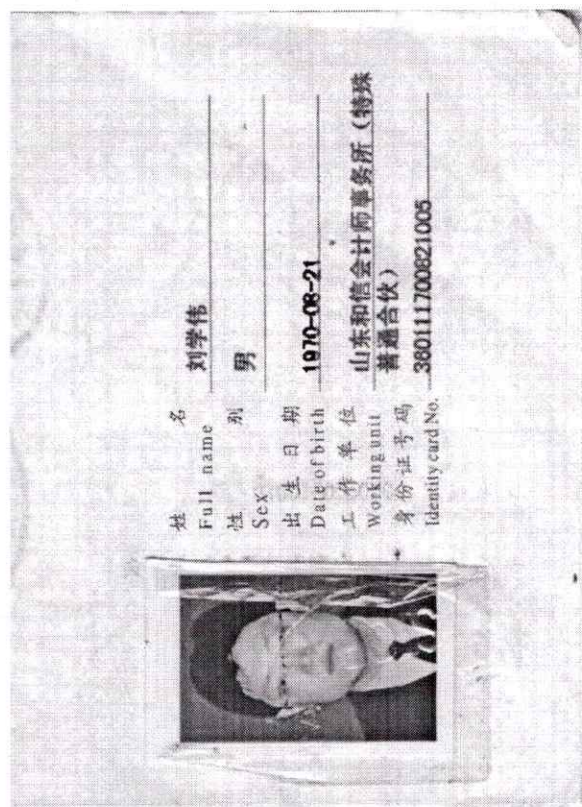 姓 名 刘学伟
Full name
性 别 男
Sex
出 生 日 期 1970-08-21
Date of birth
工 作 单 位 山东和信会计师事务所（特殊
Working unit 普通合伙）
身份证号码 380111700821005
Identity card No.